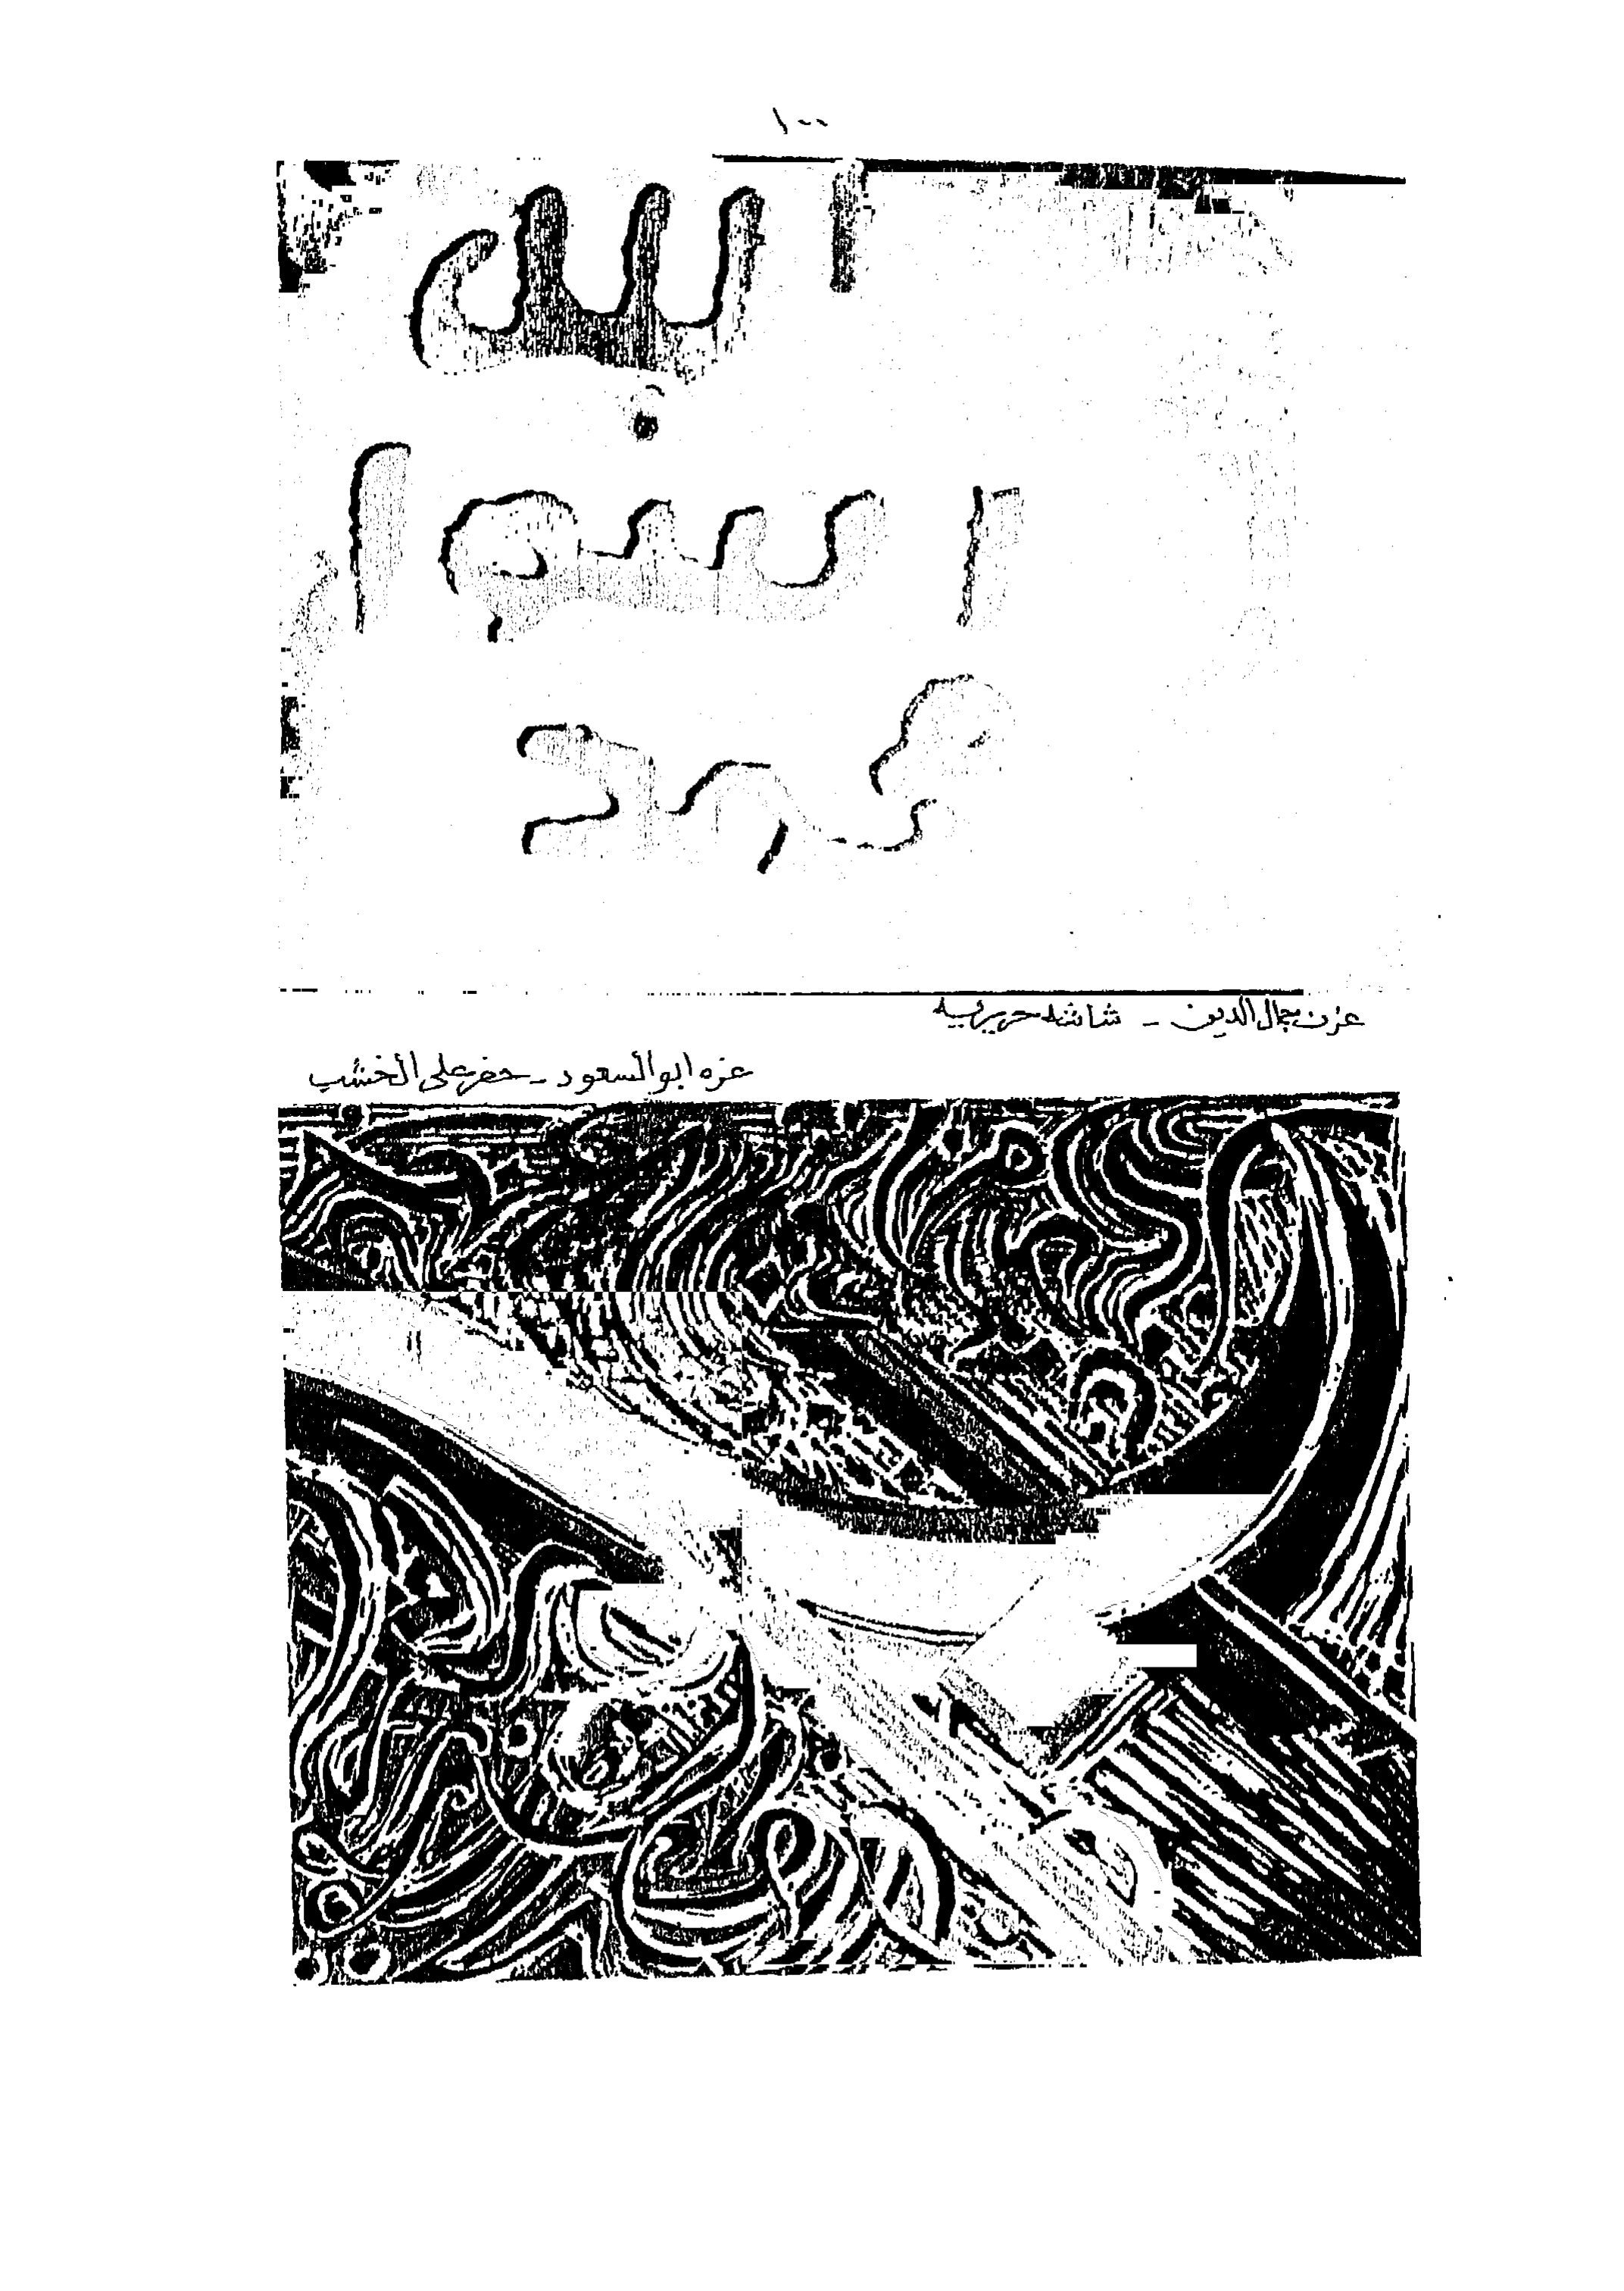 ١٠٠
الله
عزت جمال الدين - شاشه حريريه
عزه ابو السعود - حفر على الخشب